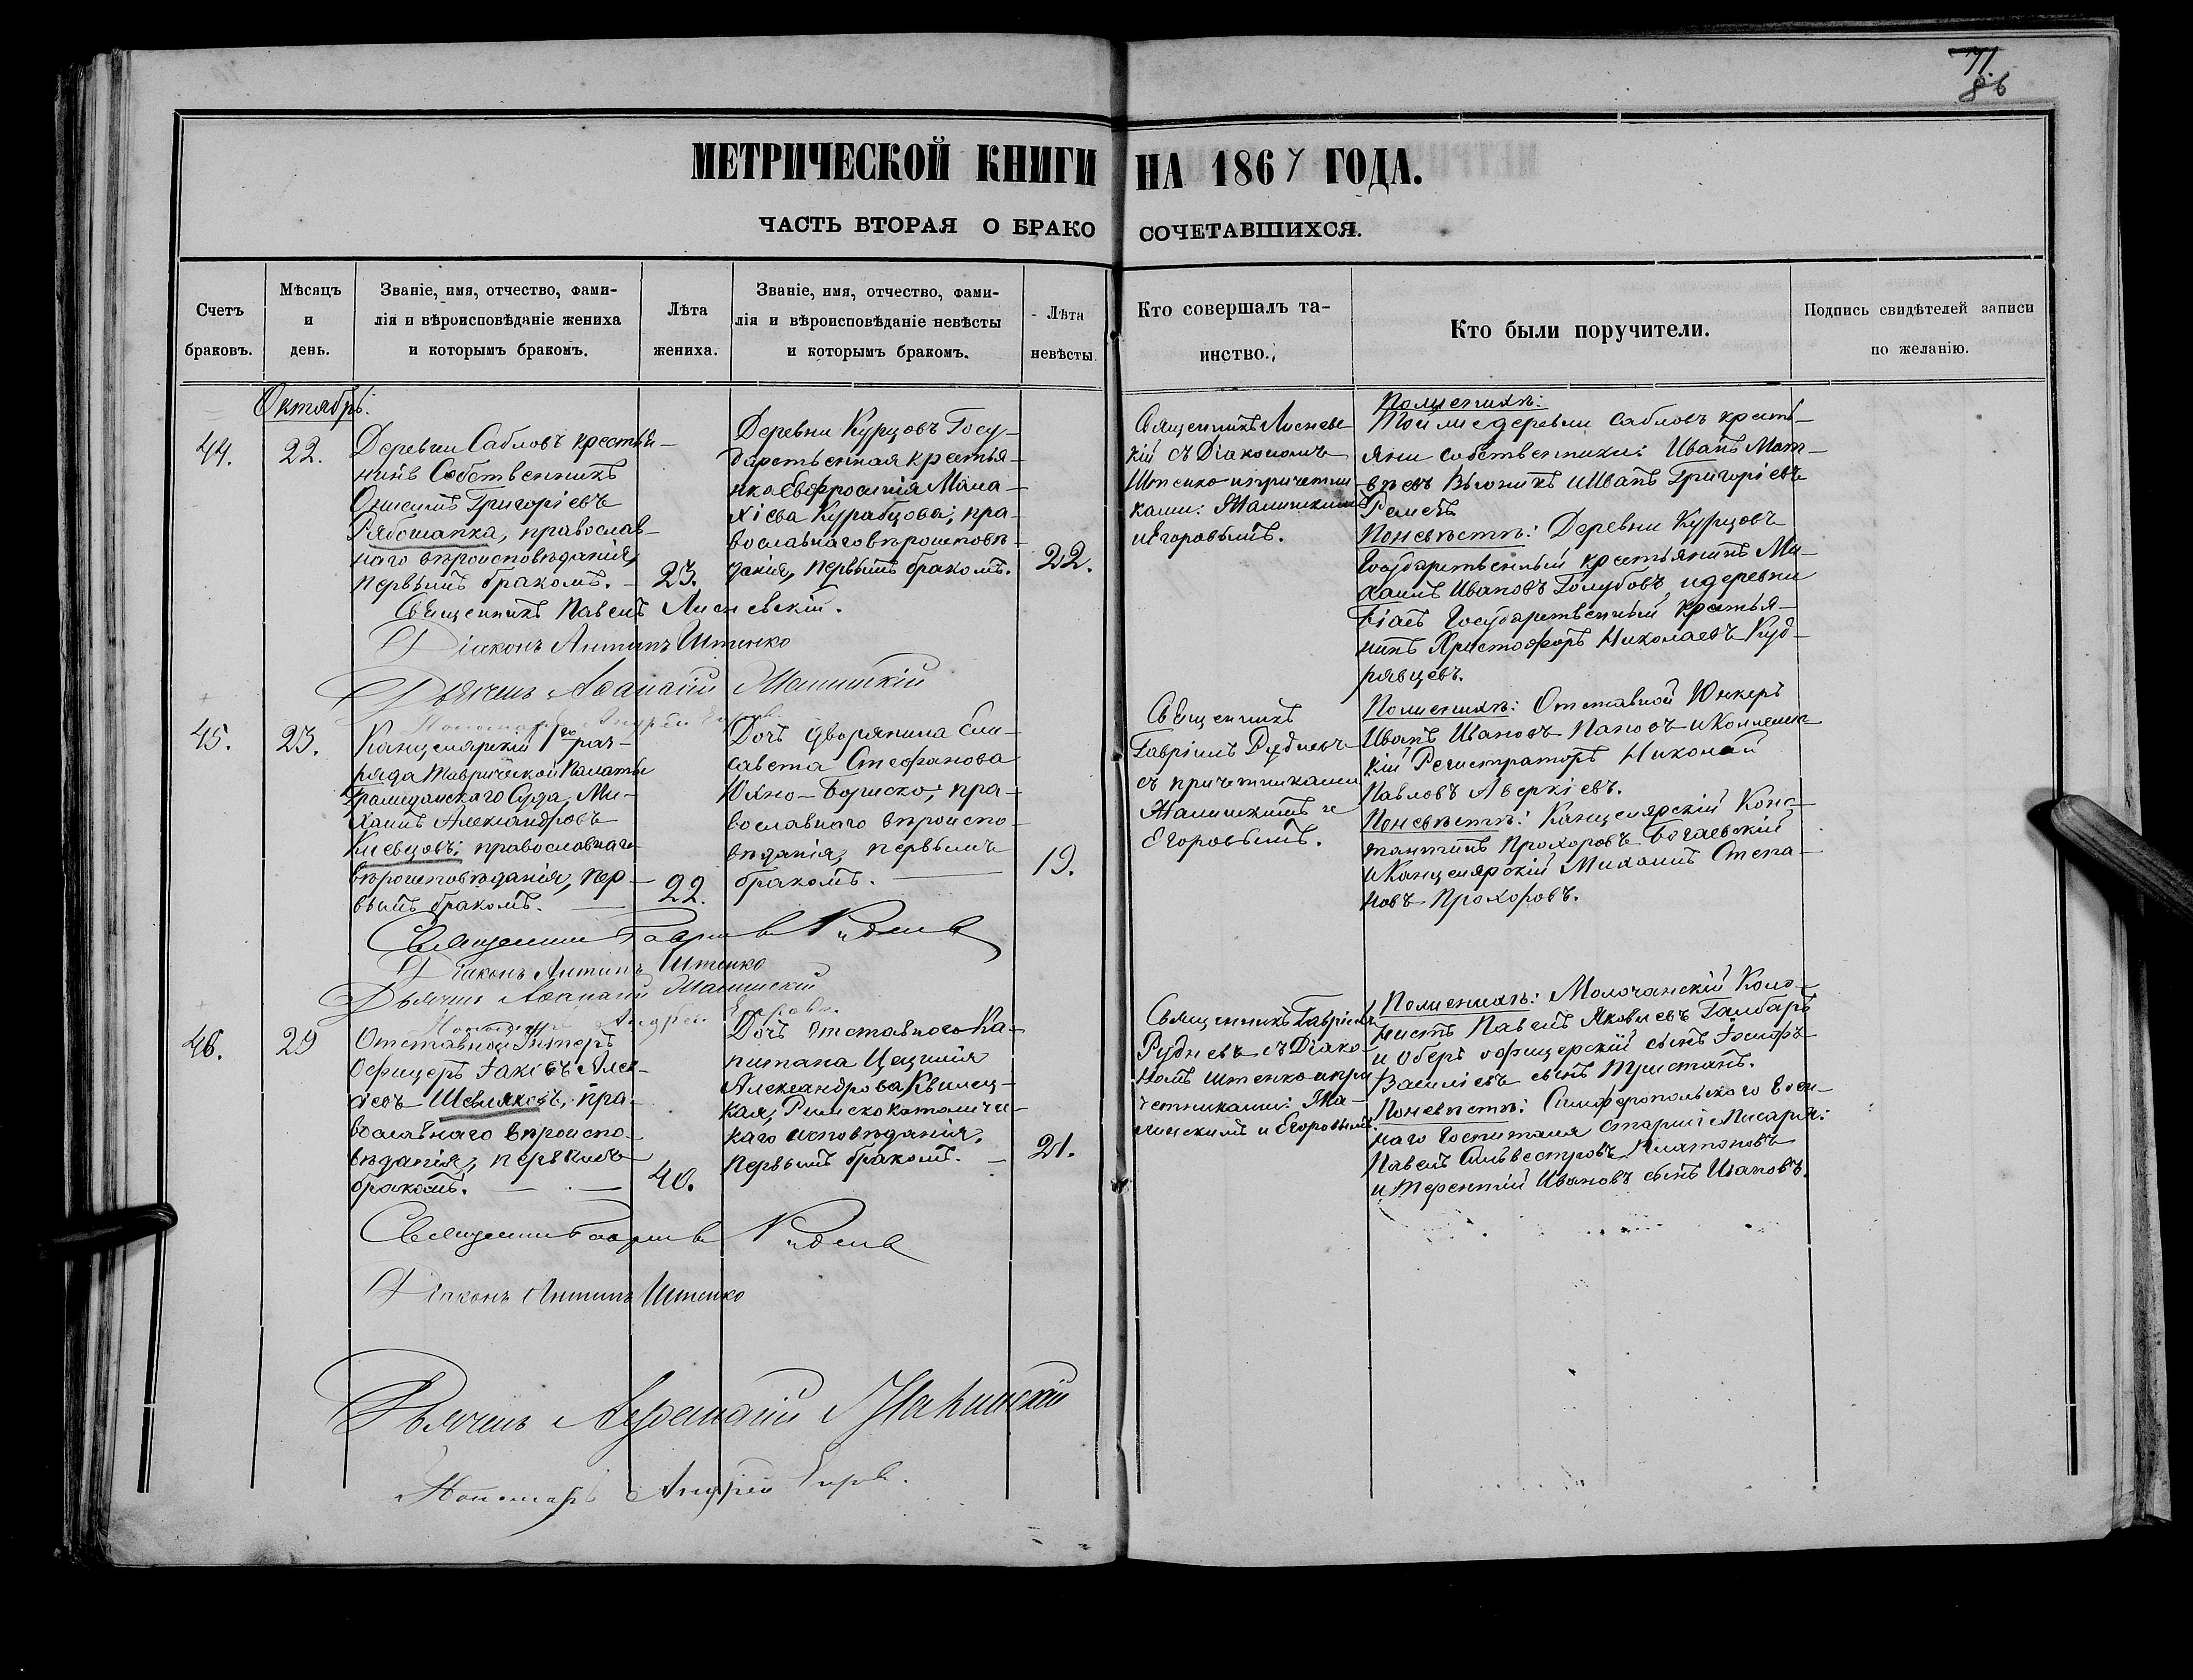 71.
86
МЕТРИЧЕСКОЙ КНИГИ НА 1867 ГОДА.
ЧАСТЬ ВТОРАЯ О БРАКОСОЧЕТАВШИХСЯ.
Счетъ
браковъ.
Мѣсяцъ
и
день.
Званіе, имя, отчество, фами-
лія и вѣроисповѣданіе жениха
и которымъ бракомъ.
Лѣта
жениха.
Званіе, имя, отчество, фами-
лія и вѣроисповѣданіе невѣсты
и которымъ бракомъ.
Лѣта
невѣсты
Кто совершалъ та-
инство.
Кто были поручители.
Подпись свидѣтелей записи
по желанію.
Октябрь.
44.
22.
Деревни Сабловъ крестья-
нинъ Собственникъ
Онисимъ Григоріевъ
Рябошапка, православ-
наго вѣроисповѣданія,
первымъ бракомъ.
23.
Деревни Курцовъ Госу-
дарственная крестья-
нка Евфросинія Мала-
хіева Курабцова; пра-
вославнаго вѣроисповѣ-
данія, первымъ бракомъ.
22.
Священникъ Лисневс-
кій съ Діакономъ
Штенко и причетни-
ками: Малинскимъ
и Егоровымъ.
По женихѣ:
Той же деревни Сабловъ кресть-
яни собственники: Иванъ Мат-
вѣевъ Вьюникъ и Иванъ Григоріевъ
Ремезъ.
По невѣстѣ: Деревни Курцовъ
Государственный крестьянинъ Ми-
хаилъ Ивановъ Голубовъ, и деревни
Біасъ Государственный крестья-
нинъ Христофоръ Николаевъ Куд-
рявцевъ.
Священникъ Павелъ Лисневскій.
Діаконъ Антипъ Штенко
Дьячекъ Афанасій Малинскій
Пономарь Андрей Егоровъ
45.
23.
Канцелярскій 1го раз-
ряда Таврической Палаты
Гражданскаго Суда, Ми-
хаилъ Александровъ
Киевцовъ; православнаго
вѣроисповѣданія, пер-
вымъ бракомъ.
22.
Дочь дворянина Ели-
савета Стефанова
Юхно-Бушско; пра-
вославнаго вѣроиспо-
вѣданія, первымъ
бракомъ.
19.
Священникъ
Гавріилъ Рудневъ
съ причетниками
Малинскимъ и
Егоровымъ.
По женихѣ: Отставной Юнкеръ
Иванъ Ивановъ Пановъ и Коллежс-
кій Регистраторъ Николай
Павловъ Аверкіевъ.
По невѣстѣ: Канцелярскій Конс-
тантинъ Прохоровъ Богаевскій
и Канцелярскій Михаилъ Степа-
новъ Прохоровъ.
Священникъ Гавріилъ Рудневъ
Діаконъ Антипъ Штенко
Дьячекъ Афанасій Малинскій
Пономарь Андрей Егоровъ.
46.
29
Отставной Унтеръ
Офицеръ Іаковъ Алек-
сѣевъ Шевляковъ, пра-
вославнаго вѣроиспо-
вѣданія, первымъ
бракомъ.
40.
Дочь отставного Ка-
питана Цецилія
Александрова Квилец-
кая, Римскокатоличе-
каго исповѣданія,
первымъ бракомъ.
21.
Священникъ Гавріилъ
Рудневъ съ Діако-
номъ Штенко и при-
четниками: Ма-
линскимъ и Егоровымъ.
По женихѣ: Молочанскій Коло-
нистъ Павелъ Яковлевъ Галбаръ
и Оберъ офицерскій сынъ Іосифъ
Василіевъ сынъ Тристанъ.
По невѣстѣ: Симферопольскаго Воен-
наго Госпиталя старшіе Писаря:
Павелъ Сильвестровъ Платоновъ
и Терентій Ивановъ сынъ Ивановъ.
Священникъ Гавріилъ Рудневъ
Діаконъ Антипъ Штенко
Дьячекъ Афанасій Малинскій
Пономарь Андрей Егоровъ.